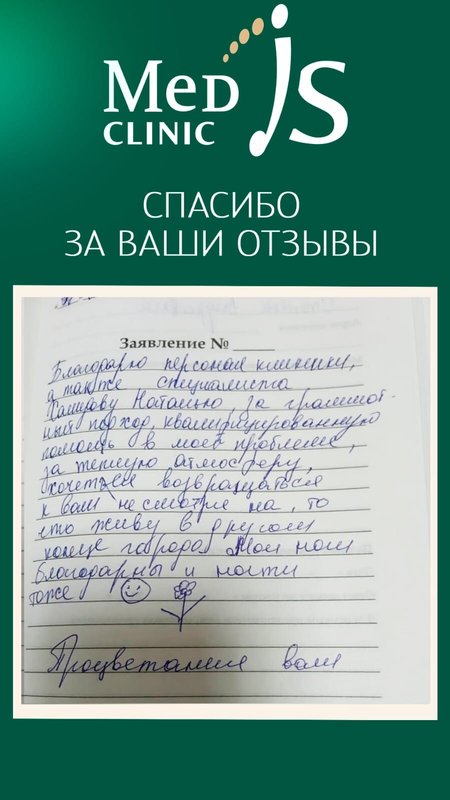 MED JS
CLINIC
СПАСИБО
ЗА ВАШИ ОТЗЫВЫ
Заявление № ____
Благодарю персонал клиники,
а также специалиста
Наталью, за грамот-
ный подход, квалифицированную
помощь в моей проблеме,
за теплую атмосферу,
хочется возвращаться
к вам не смотря на, то
что живу в другом
конце города. Мои ноги
благодарны и ногти
тоже
Процветания вам